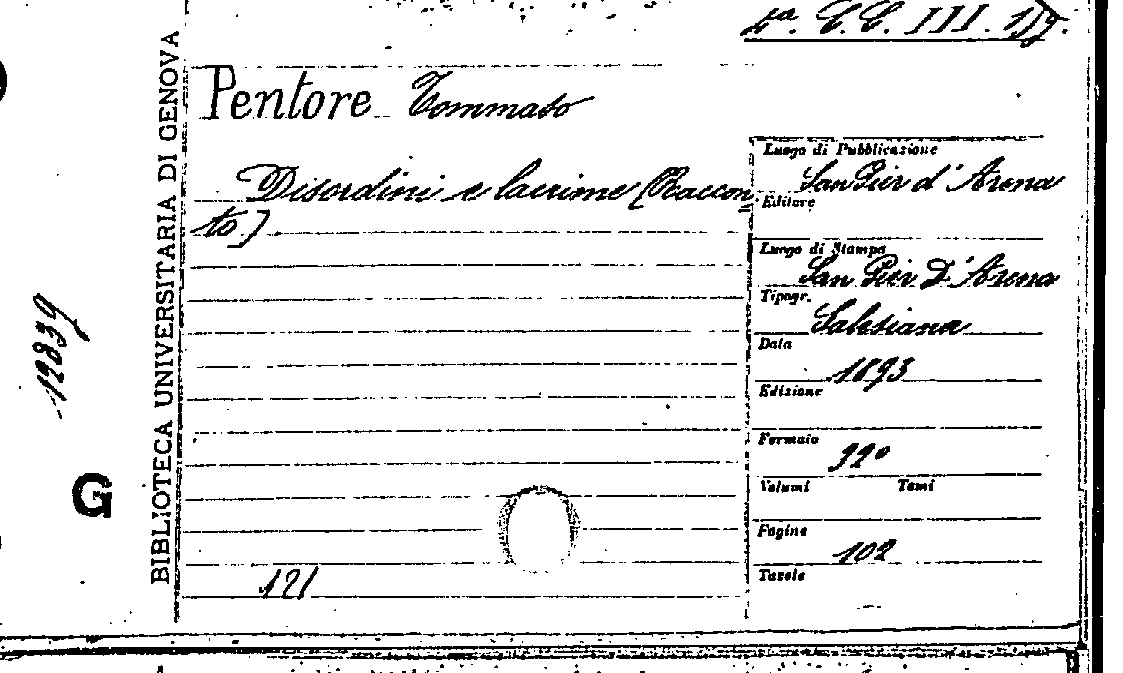 4ª. C.C. III. 1
Pentore Tommaso
Disordini e lacrime (Raccon=
to).
121
Luogo di Pubblicazione
San Pier d'Arena
Editore
Luogo di Stampa
San Pier D'Arena
Tipogr.
Salesiana
Data
1893
Edizione
Formato
32°
Volumi Tomi
Pagine
102
Tavole
BIBLIOTECA UNIVERSITARIA DI GENOVA
G